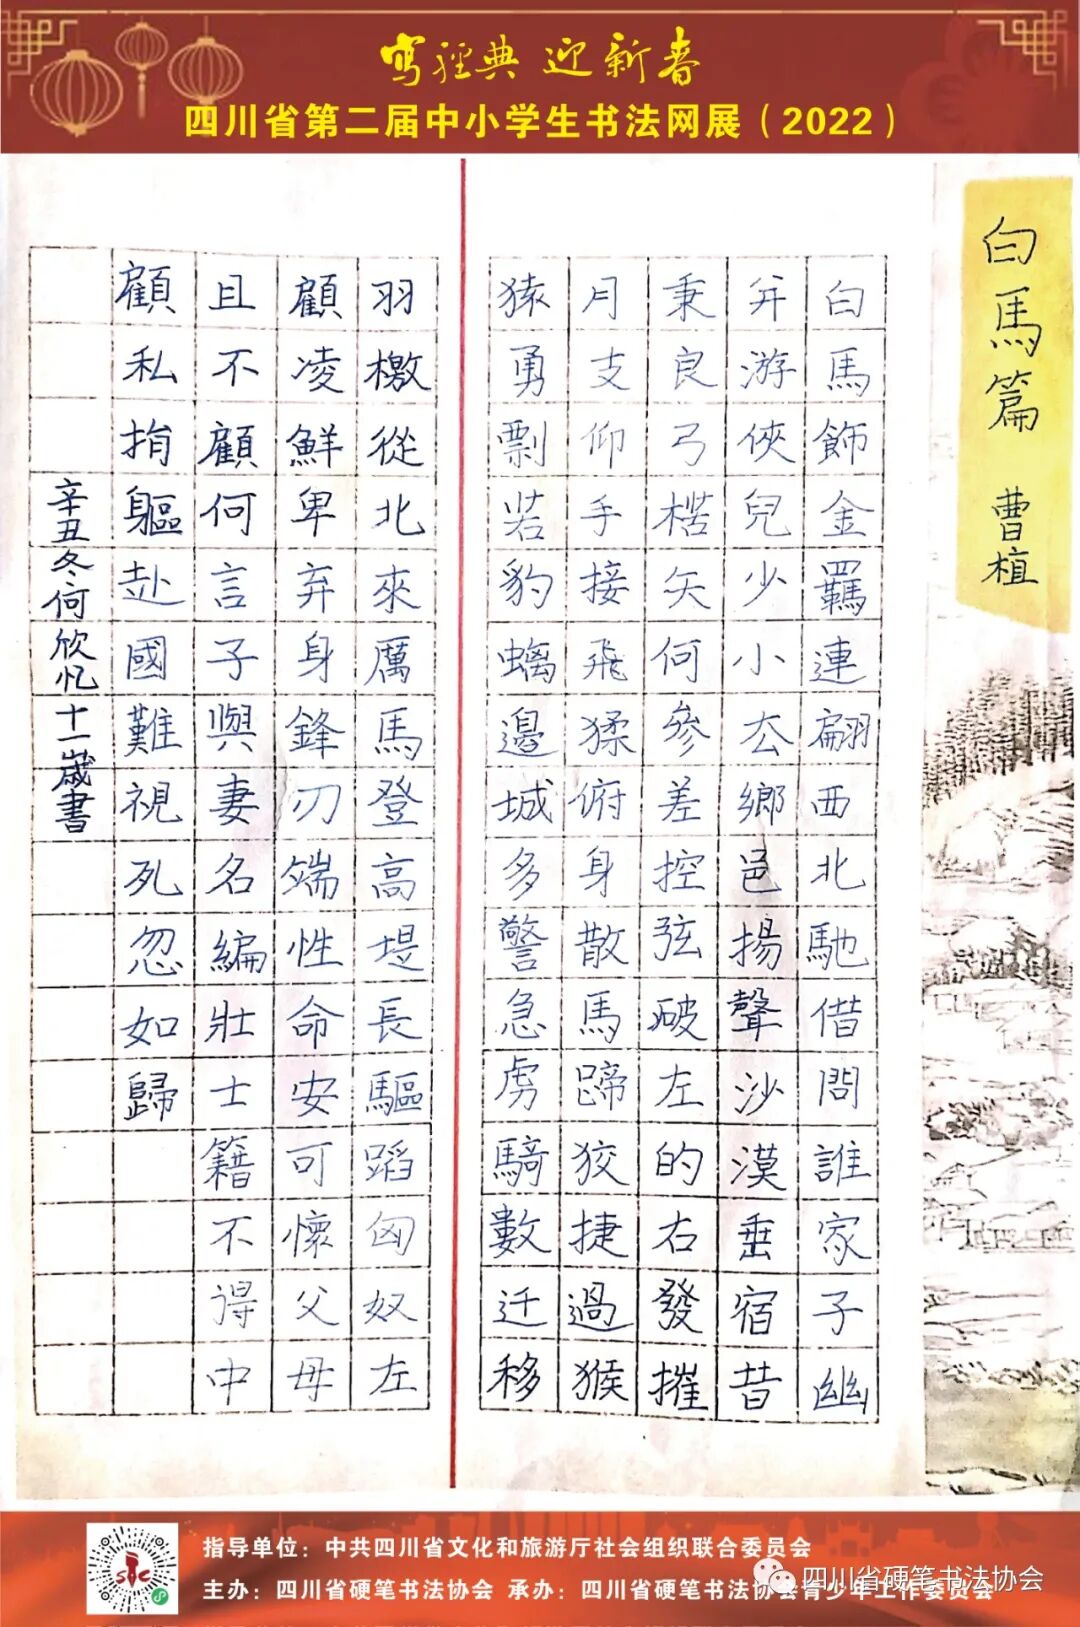 寫經典 迎新春
四川省第二届中小学生书法网展（2022）
白馬篇 曹植
白馬飾金羈連翩西北馳借問誰家子幽
并游俠兒少小去鄉邑揚聲沙漠垂宿昔
秉良弓楛矢何參差控弦破左的右發摧
月支仰手接飛猱俯身散馬蹄狡捷過猴
猿勇剽若豹螭邊城多警急虏騎數迁移
羽檄從北來厲馬登高堤長驅蹈匈奴左
顧凌鮮卑弃身鋒刃端性命安可懷父母
且不顧何言子與妻名編壯士籍不得中
顧私捐軀赴國難視死忽如歸
辛丑冬何欣忆十一歲書
指导单位：中共四川省文化和旅游厅社会组织联合委员会
主办：四川省硬笔书法协会 承办：四川省硬笔书法协会青少年工作委员会
四川省硬笔书法协会